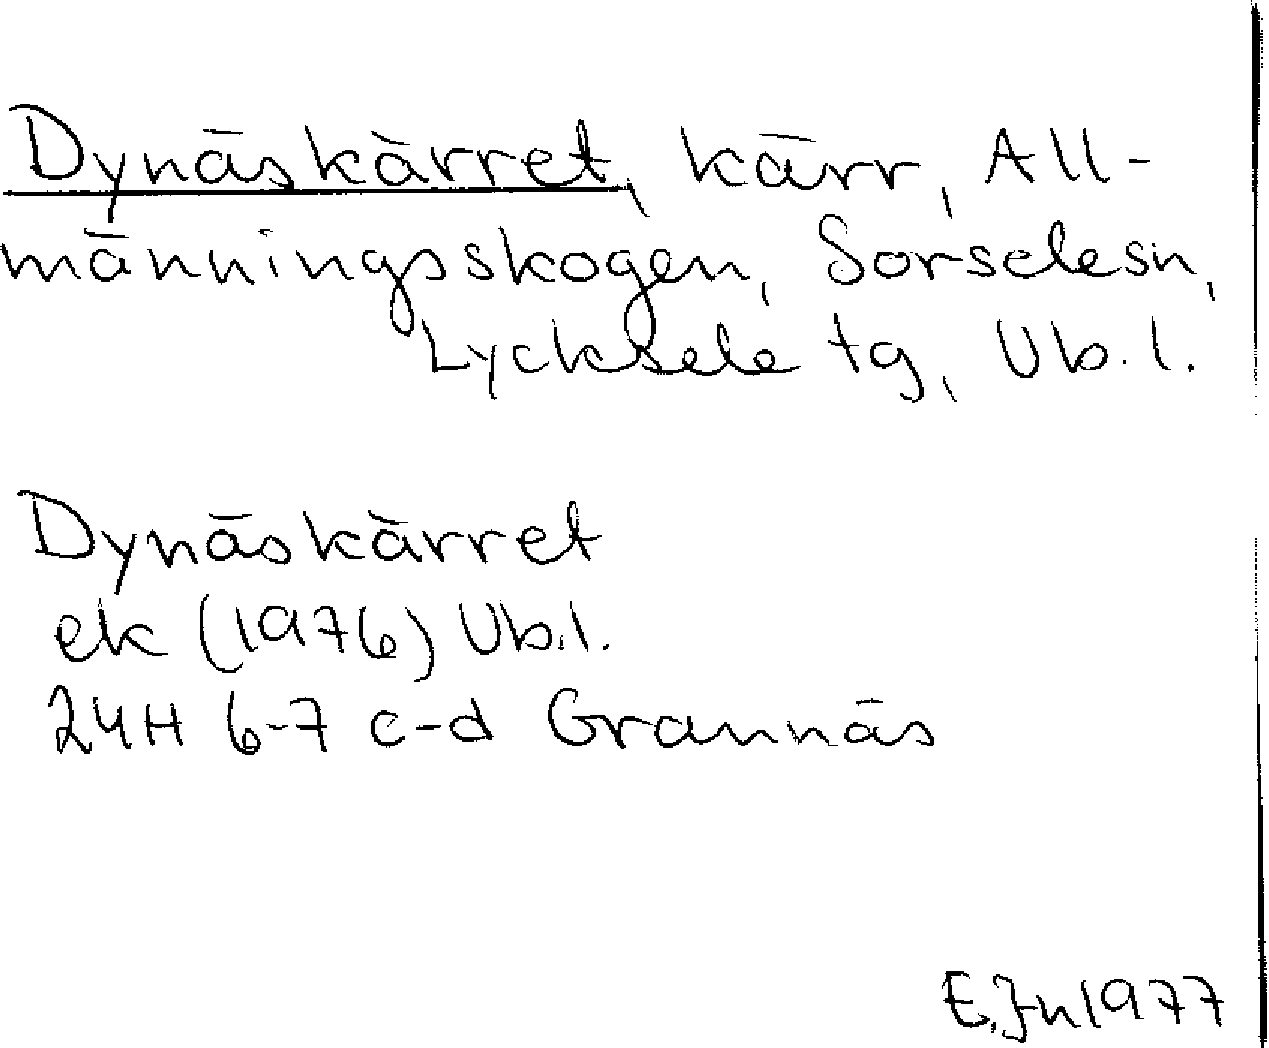 Dynäskärret, kärr, All-
männingsskogen, Sorselesn,
Lycksele tg, Vb. l.
Dynäskärret
ek (1976) Vb.l.
24H 6-7 c-d Grannäs
E.Jn 1977